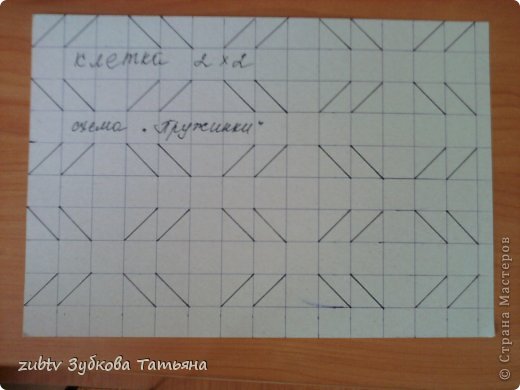 клетка 2×2
схема „Пружинки“
zubtv Зубкова Татьяна
© Страна Мастеров